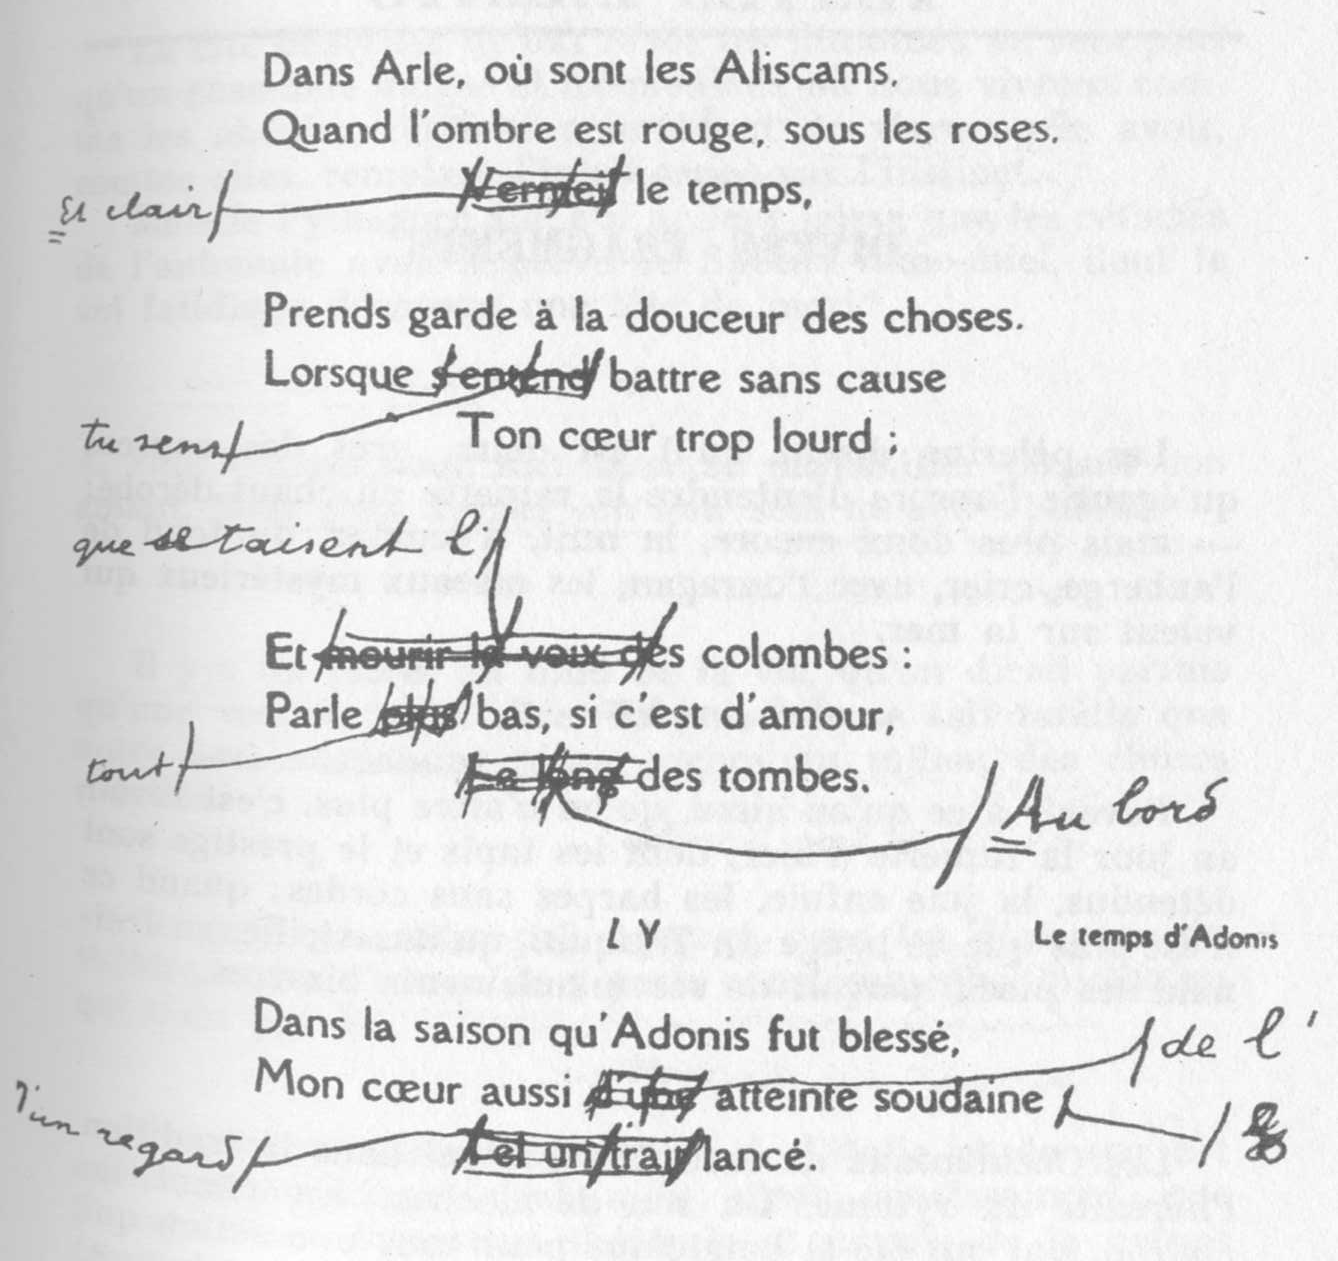 Dans Arle, où sont les Aliscams,
Quand l'ombre est rouge, sous les roses.
Et clair Vermeil le temps,
Prends garde à la douceur des choses.
Lorsque s'entend battre sans cause
tu sens Ton cœur trop lourd ;
que se taisent l
Et mourir la voix des colombes :
Parle plus bas, si c'est d'amour,
tout Le long des tombes. Au bord
LY Le temps d'Adonis
Dans la saison qu'Adonis fut blessé, de l'
Mon cœur aussi d'une atteinte soudaine
d'un regard Tel un trait lancé.